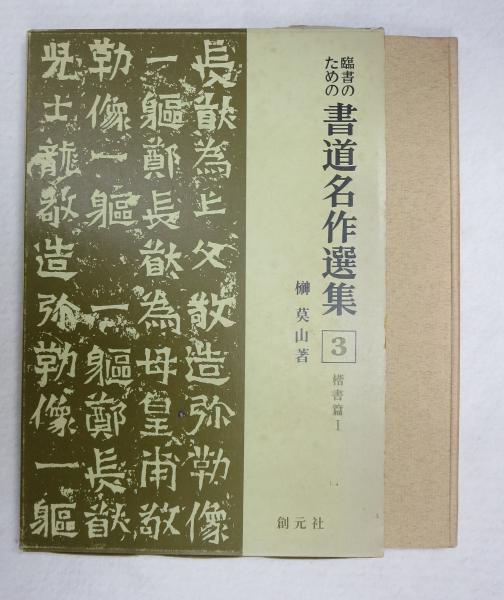 臨書の
ための
書道名作選集
3
楷書篇Ⅰ
榊莫山著
創元社
長猷為亡父敬造弥勒像
一軀鄭長猷為母皇甫敬
勒像一軀一軀鄭長猷
児士龍敬造弥勒像一軀